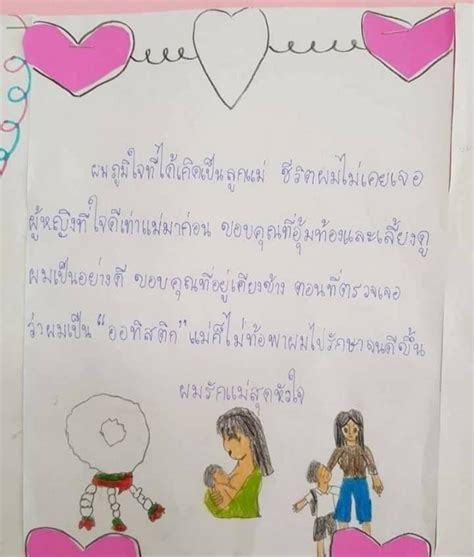 ผมภูมิใจที่ได้เกิดเป็นลูกแม่ ชีวิตผมไม่เคยเจอ
ผู้หญิงที่ใจดีเท่าแม่มาก่อน ขอบคุณที่อุ้มท้องและเลี้ยงดู
ผมเป็นอย่างดี ขอบคุณที่อยู่เคียงข้าง ตอนที่ตรวจเจอ
ว่าผมเป็น “ออทิสติก” แม่ก็ไม่ท้อพาผมไปรักษาจนดีขึ้น
ผมรักแม่สุดหัวใจ